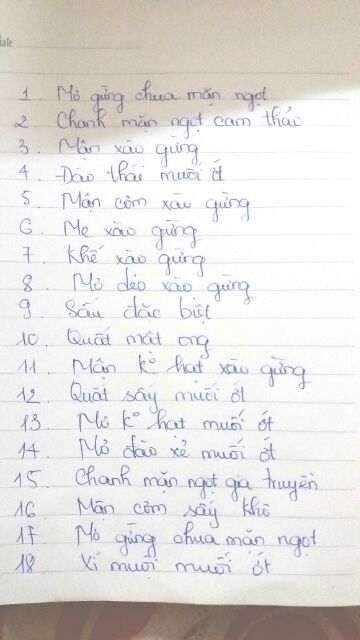 date
1. Mơ gừng chua mặn ngọt
2. Chanh mặn ngọt cam thảo
3. Mận xào gừng
4. Đào thái muối ớt
5. Mận cơm xào gừng
6. Me xào gừng
7. Khế xào gừng
8. Mơ dẻo xào gừng
9. Sấu đặc biệt
10. Quất mật ong
11. Mận ko hạt xào gừng
12. Quất sấy muối ớt
13. Mơ ko hạt muối ớt
14. Mơ đào xẻ muối ớt
15. Chanh mặn ngọt gia truyền
16. Mận cơm sấy khô
17. Mơ gừng chua mặn ngọt
18. Xí muội muối ớt